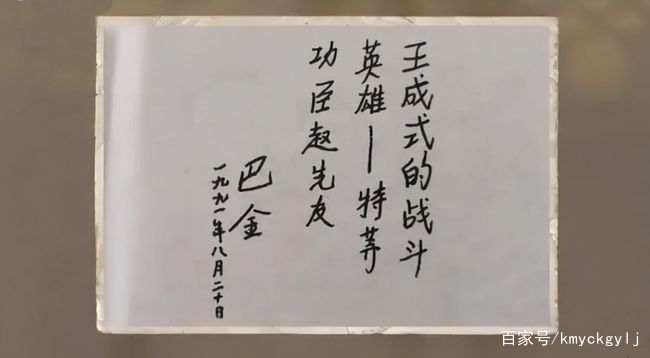 王成式的战斗
英雄—特等
功臣赵先友
巴金
一九九一年八月二十日
百家号/kmyckgylj